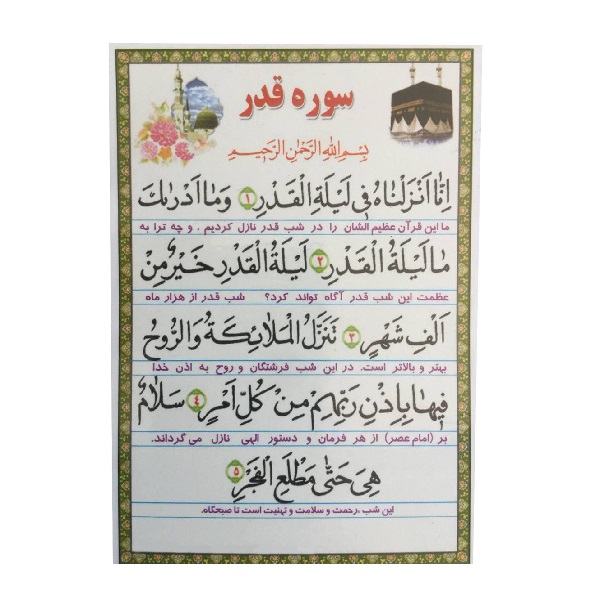 سوره قدر
بِسْمِ اللهِ الرَّحْمٰنِ الرَّحِیمِ
اِنّا اَنْزَلْناهُ فی لَیْلَةِ الْقَدْرِ ۱ وَما اَدْریٰكَ
ما این قرآن عظیم الشان را در شب قدر نازل کردیم . و چه ترا به
ما لَیْلَةُ الْقَدْرِ ۲ لَیْلَةُ الْقَدْرِ خَیْرٌ مِنْ
عظمت این شب قدر آگاه تواند کرد؟ شب قدر از هزار ماه
اَلْفِ شَهْرٍ ۳ تَنَزَّلُ الْمَلائِکَةُ وَالرُّوحُ
بهتر و بالاتر است. در این شب فرشتگان و روح به اذن خدا
فیها بِاِذْنِ رَبِّهِمْ مِنْ کُلِّ اَمْرٍ ۴ سَلامٌ
بر (امام عصر) از هر فرمان و دستور الهی نازل می گرداند.
هِیَ حَتّیٰ مَطْلَعِ الْفَجْرِ ۵
این شب ،رحمت و سلامت و تهنیت است تا صبحگاه.